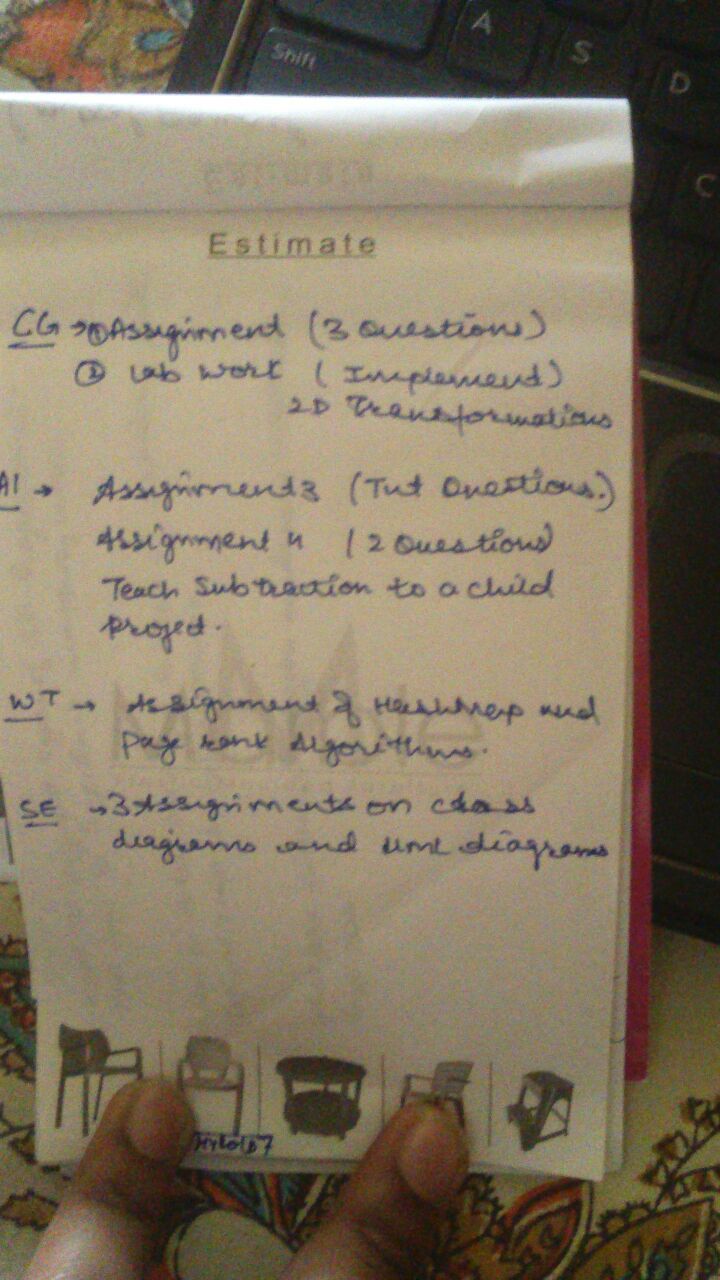 A
Shift
S
D
C
Estimate
CG → ① Assignment (3 Questions)
② Lab Work (Implement)
2D Transformations
AI → Assignment 3 (Tut Questions.)
Assignment 4 (2 Questions)
Teach Subtraction to a child
Project.
WT → Assignment of HashMap and
Page Rank Algorithms.
SE → 3 Assignments on class
diagrams and UML diagrams